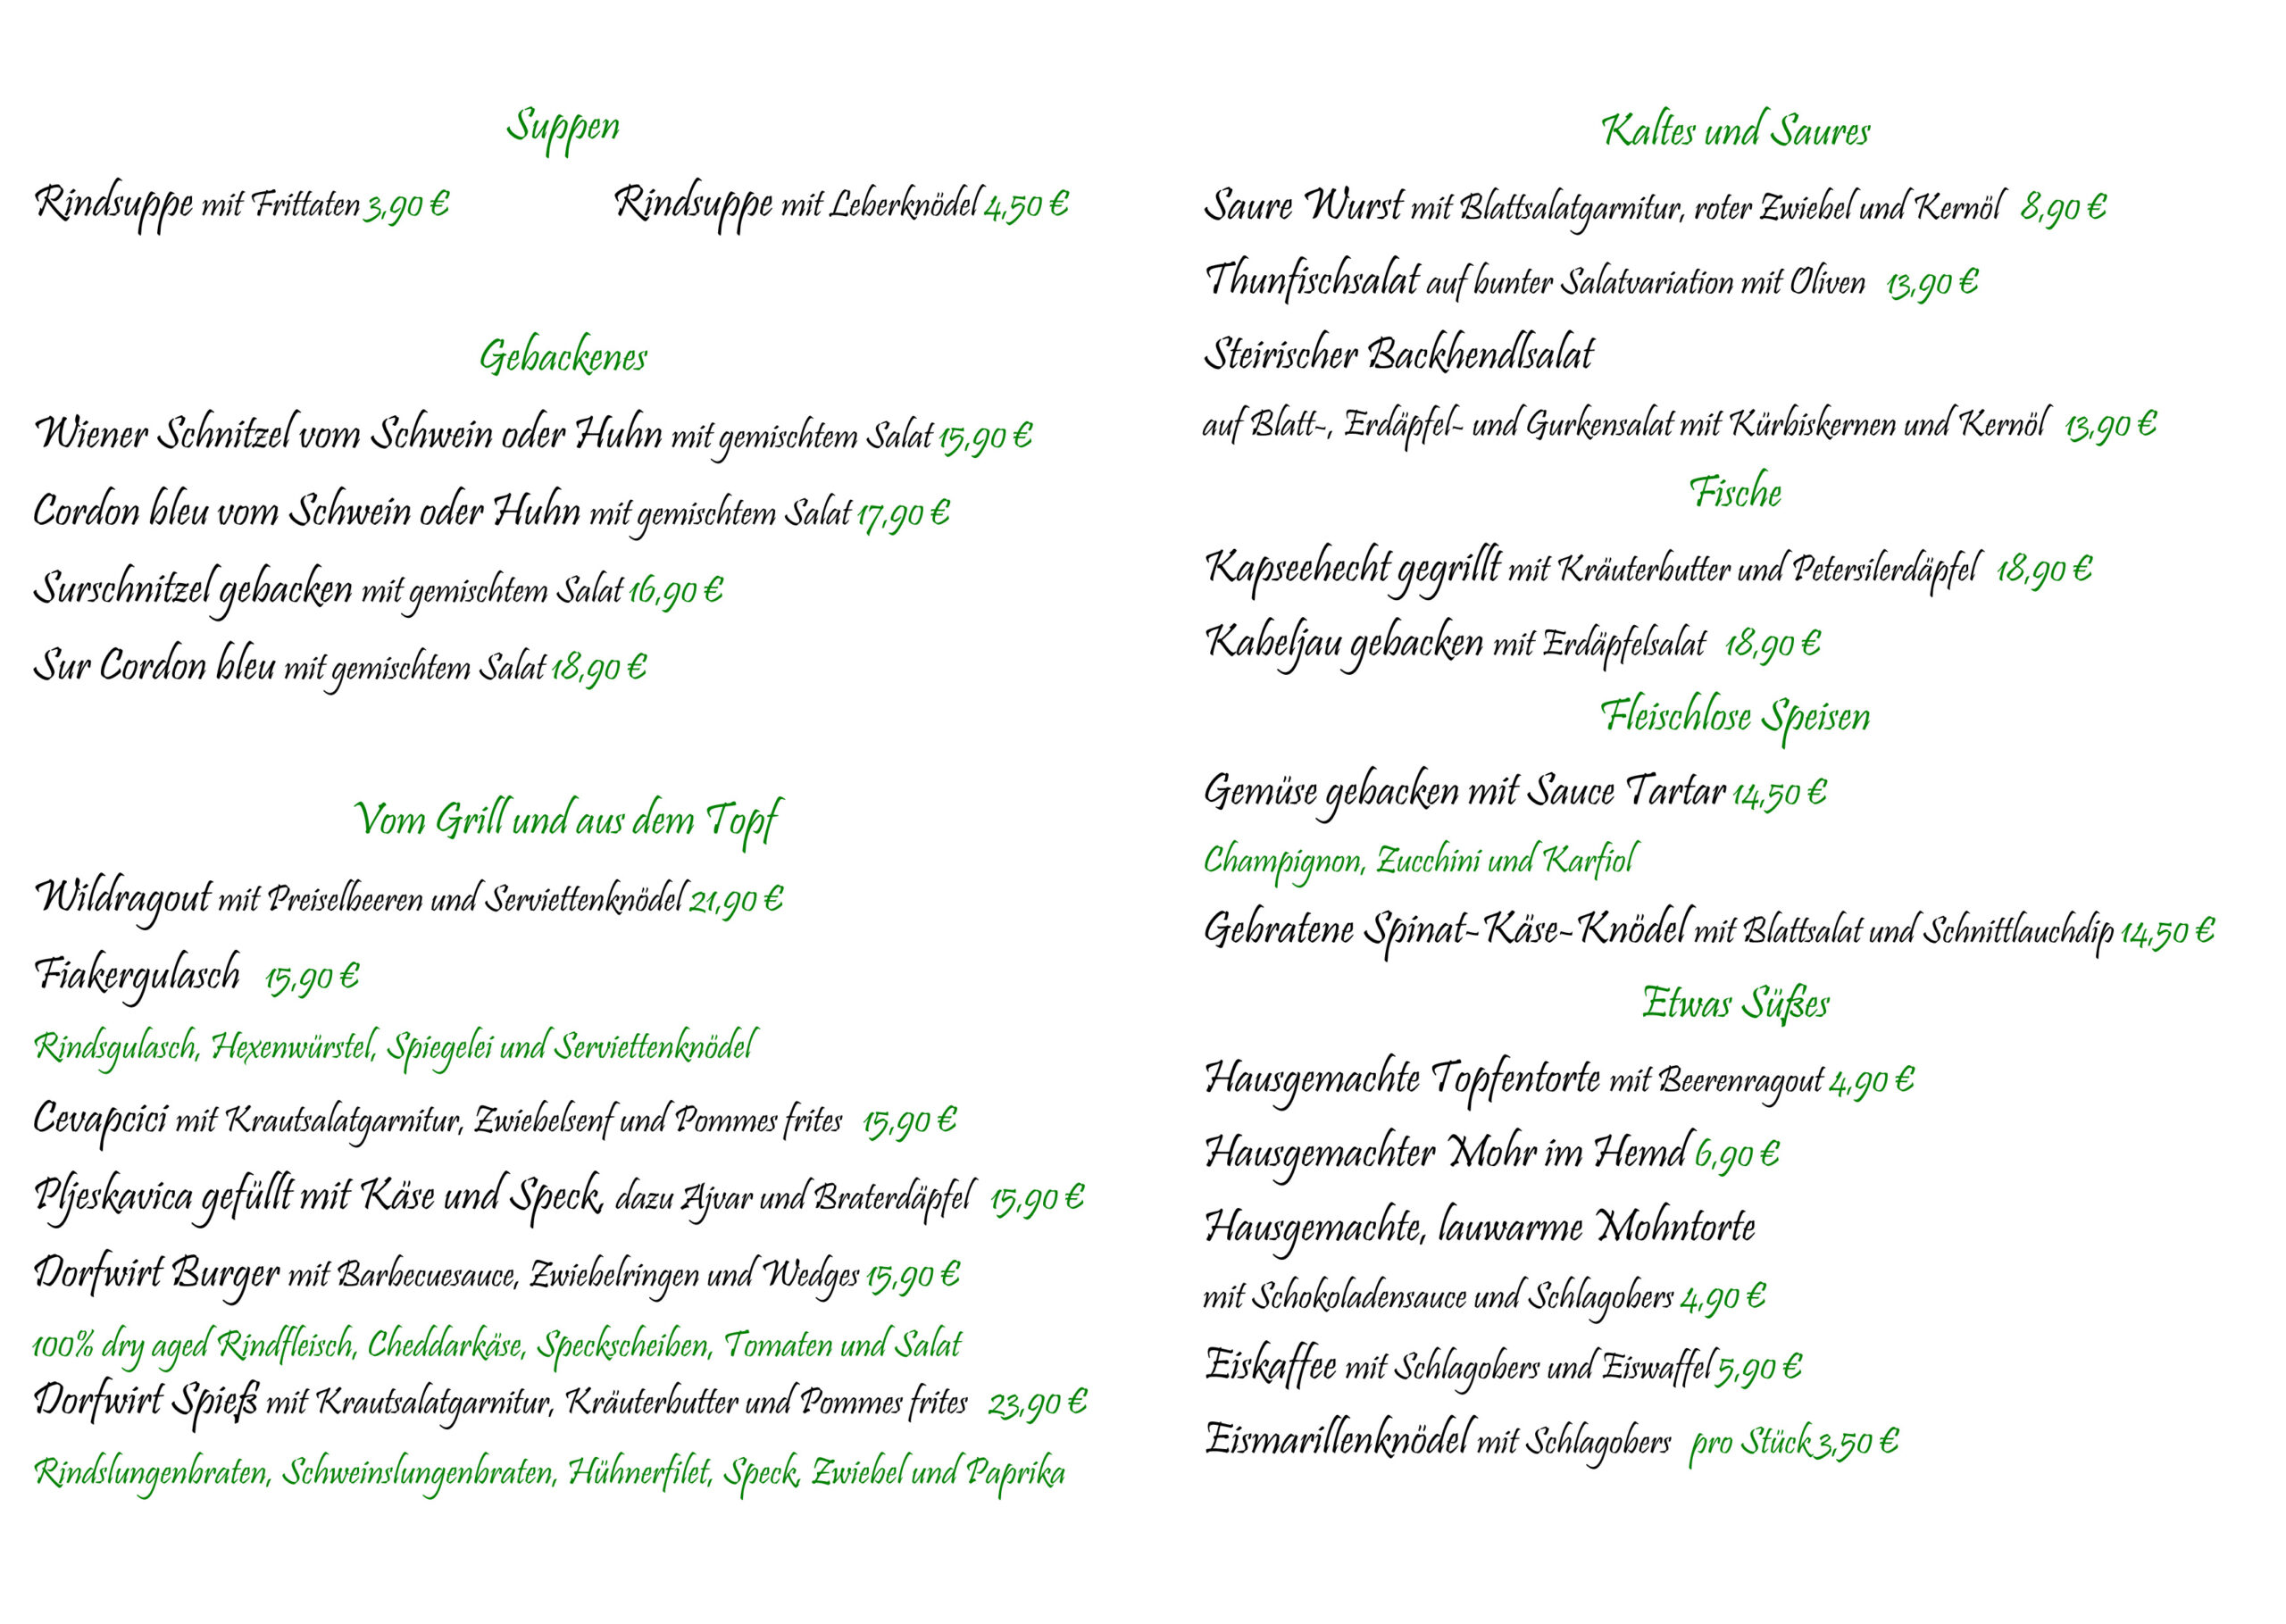 Suppen
Rindsuppe mit Frittaten 3,90 € Rindsuppe mit Leberknödel 4,50 €
Gebackenes
Wiener Schnitzel vom Schwein oder Huhn mit gemischtem Salat 15,90 €
Cordon bleu vom Schwein oder Huhn mit gemischtem Salat 17,90 €
Surschnitzel gebacken mit gemischtem Salat 16,90 €
Sur Cordon bleu mit gemischtem Salat 18,90 €
Vom Grill und aus dem Topf
Wildragout mit Preiselbeeren und Serviettenknödel 21,90 €
Fiakergulasch 15,90 €
Rindsgulasch, Hexenwürstel, Spiegelei und Serviettenknödel
Cevapcici mit Krautsalatgarnitur, Zwiebelsenf und Pommes frites 15,90 €
Pljeskavica gefüllt mit Käse und Speck, dazu Ajvar und Braterdäpfel 15,90 €
Dorfwirt Burger mit Barbecuesauce, Zwiebelringen und Wedges 15,90 €
100% dry aged Rindfleisch, Cheddarkäse, Speckscheiben, Tomaten und Salat
Dorfwirt Spieß mit Krautsalatgarnitur, Kräuterbutter und Pommes frites 23,90 €
Rindslungenbraten, Schweinslungenbraten, Hühnerfilet, Speck, Zwiebel und Paprika
Kaltes und Saures
Saure Wurst mit Blattsalatgarnitur, roter Zwiebel und Kernöl 8,90 €
Thunfischsalat auf bunter Salatvariation mit Oliven 13,90 €
Steirischer Backhendlsalat
auf Blatt-, Erdäpfel- und Gurkensalat mit Kürbiskernen und Kernöl 13,90 €
Fische
Kapseehecht gegrillt mit Kräuterbutter und Petersilerdäpfel 18,90 €
Kabeljau gebacken mit Erdäpfelsalat 18,90 €
Fleischlose Speisen
Gemüse gebacken mit Sauce Tartar 14,50 €
Champignon, Zucchini und Karfiol
Gebratene Spinat-Käse-Knödel mit Blattsalat und Schnittlauchdip 14,50 €
Etwas Süßes
Hausgemachte Topfentorte mit Beerenragout 4,90 €
Hausgemachter Mohr im Hemd 6,90 €
Hausgemachte, lauwarme Mohntorte
mit Schokoladensauce und Schlagobers 4,90 €
Eiskaffee mit Schlagobers und Eiswaffel 5,90 €
Eismarillenknödel mit Schlagobers pro Stück 3,50 €